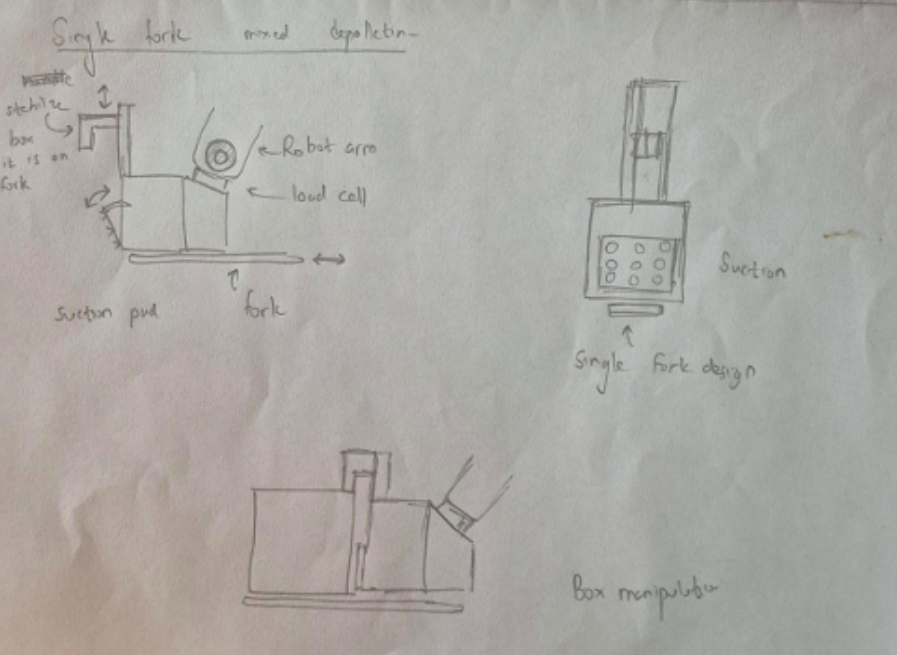 Single fork mixed depalletin
stabilize
box
it is on
fork
Robot arm
load cell
suction pad
fork
Suction
Single Fork design
Box manipulator